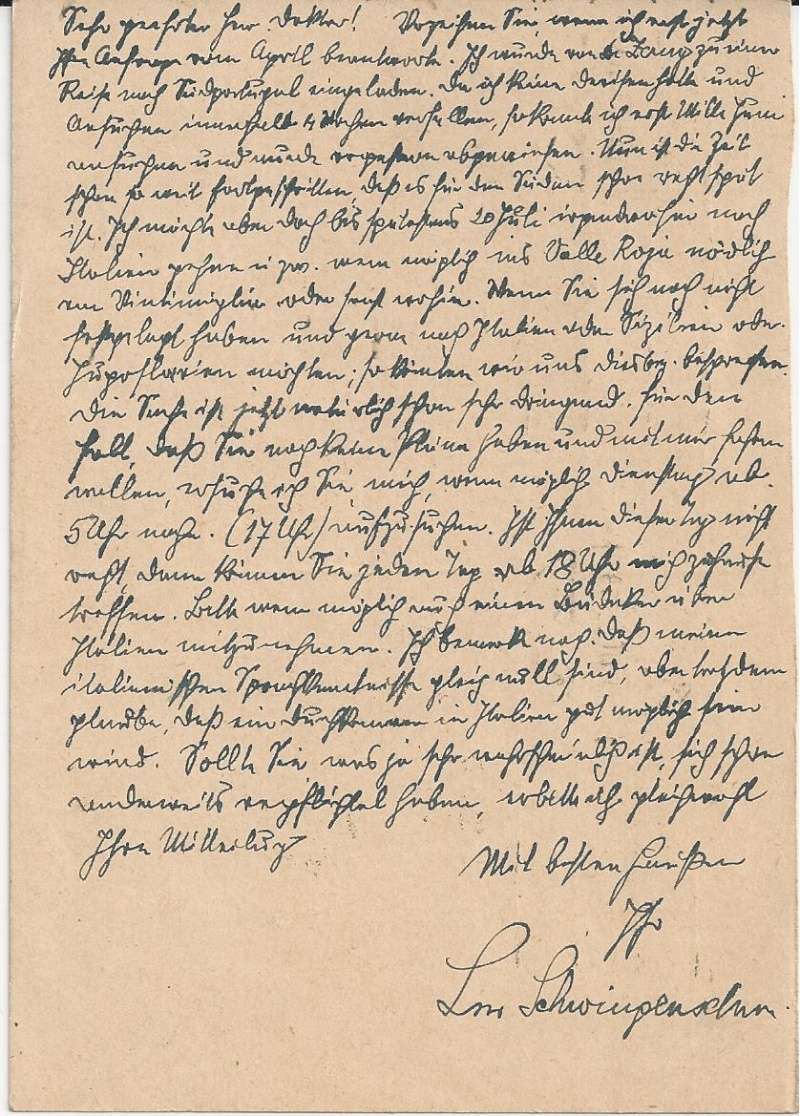 Sehr geehrter Herr Doktor! Verzeihen Sie, wenn ich erst jetzt
Ihre Anfrage vom April beantworte. Ich wurde von zu einer
Reise nach Südportugal eingeladen. Da ich keine Devisen hatte und
Ansuchen innerhalb 4 Wochen verfallen, so konnte ich erst Mitte Juni
ansuchen und wurde vorgestern abgewiesen. Nun ist die Zeit
schon so weit fortgeschritten, daß es für den Süden schon recht spät
ist. Ich möchte aber doch bis spätestens 10 Juli irgendwohin nach
Italien gehen u zw. wenn möglich ins Valle Roja nördlich
von Vintimiglia oder sonst wohin. Wenn Sie sich noch nicht
festgelegt haben und gerne nach Italien oder Sizilien oder
Jugoslavien möchten, so könnten wir uns diesbez. besprechen.
Die Sache ist jetzt natürlich schon sehr dringend. Für den
Fall, daß Sie noch keine Pläne haben und mit mir fahren
wollen, ersuche ich Sie mich, wenn möglich Dienstag ab
5 Uhr nachm. (17 Uhr) aufzusuchen. Ist Ihnen dieser Tag nicht
recht, dann können Sie jeden Tag ab 18 Uhr mich zuhause
treffen. Bitte wenn möglich auch einen Bädeker über
Italien mitzunehmen. Ich bemerke noch, daß meine
italienischen Sprachkenntnisse gleich null sind, aber trotzdem
glaube, daß ein Durchkommen in Italien gut möglich sein
wird. Sollte Sie was ja sehr wahrscheinlich ist, sich schon
anderweits verpflichtet haben, erbitte ich gleichwohl
Ihre Mitteilung
Mit besten Grüßen
Ihr
Leo Schwingenschuss